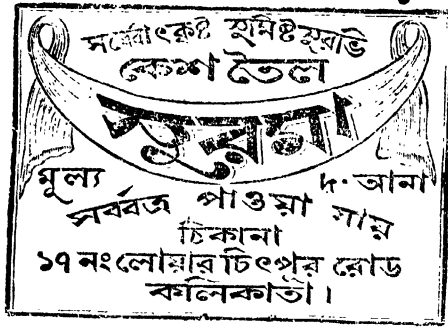 সর্ব্বোৎকৃষ্ট সুমিষ্ট সুরভি
কেশ তৈল
সুরমা
মূল্য ৸৹ আনা
সর্ব্বত্র পাওয়া যায়
ঠিকানা
১৭ নং লোয়ার চিৎপুর রোড
কলিকাতা।